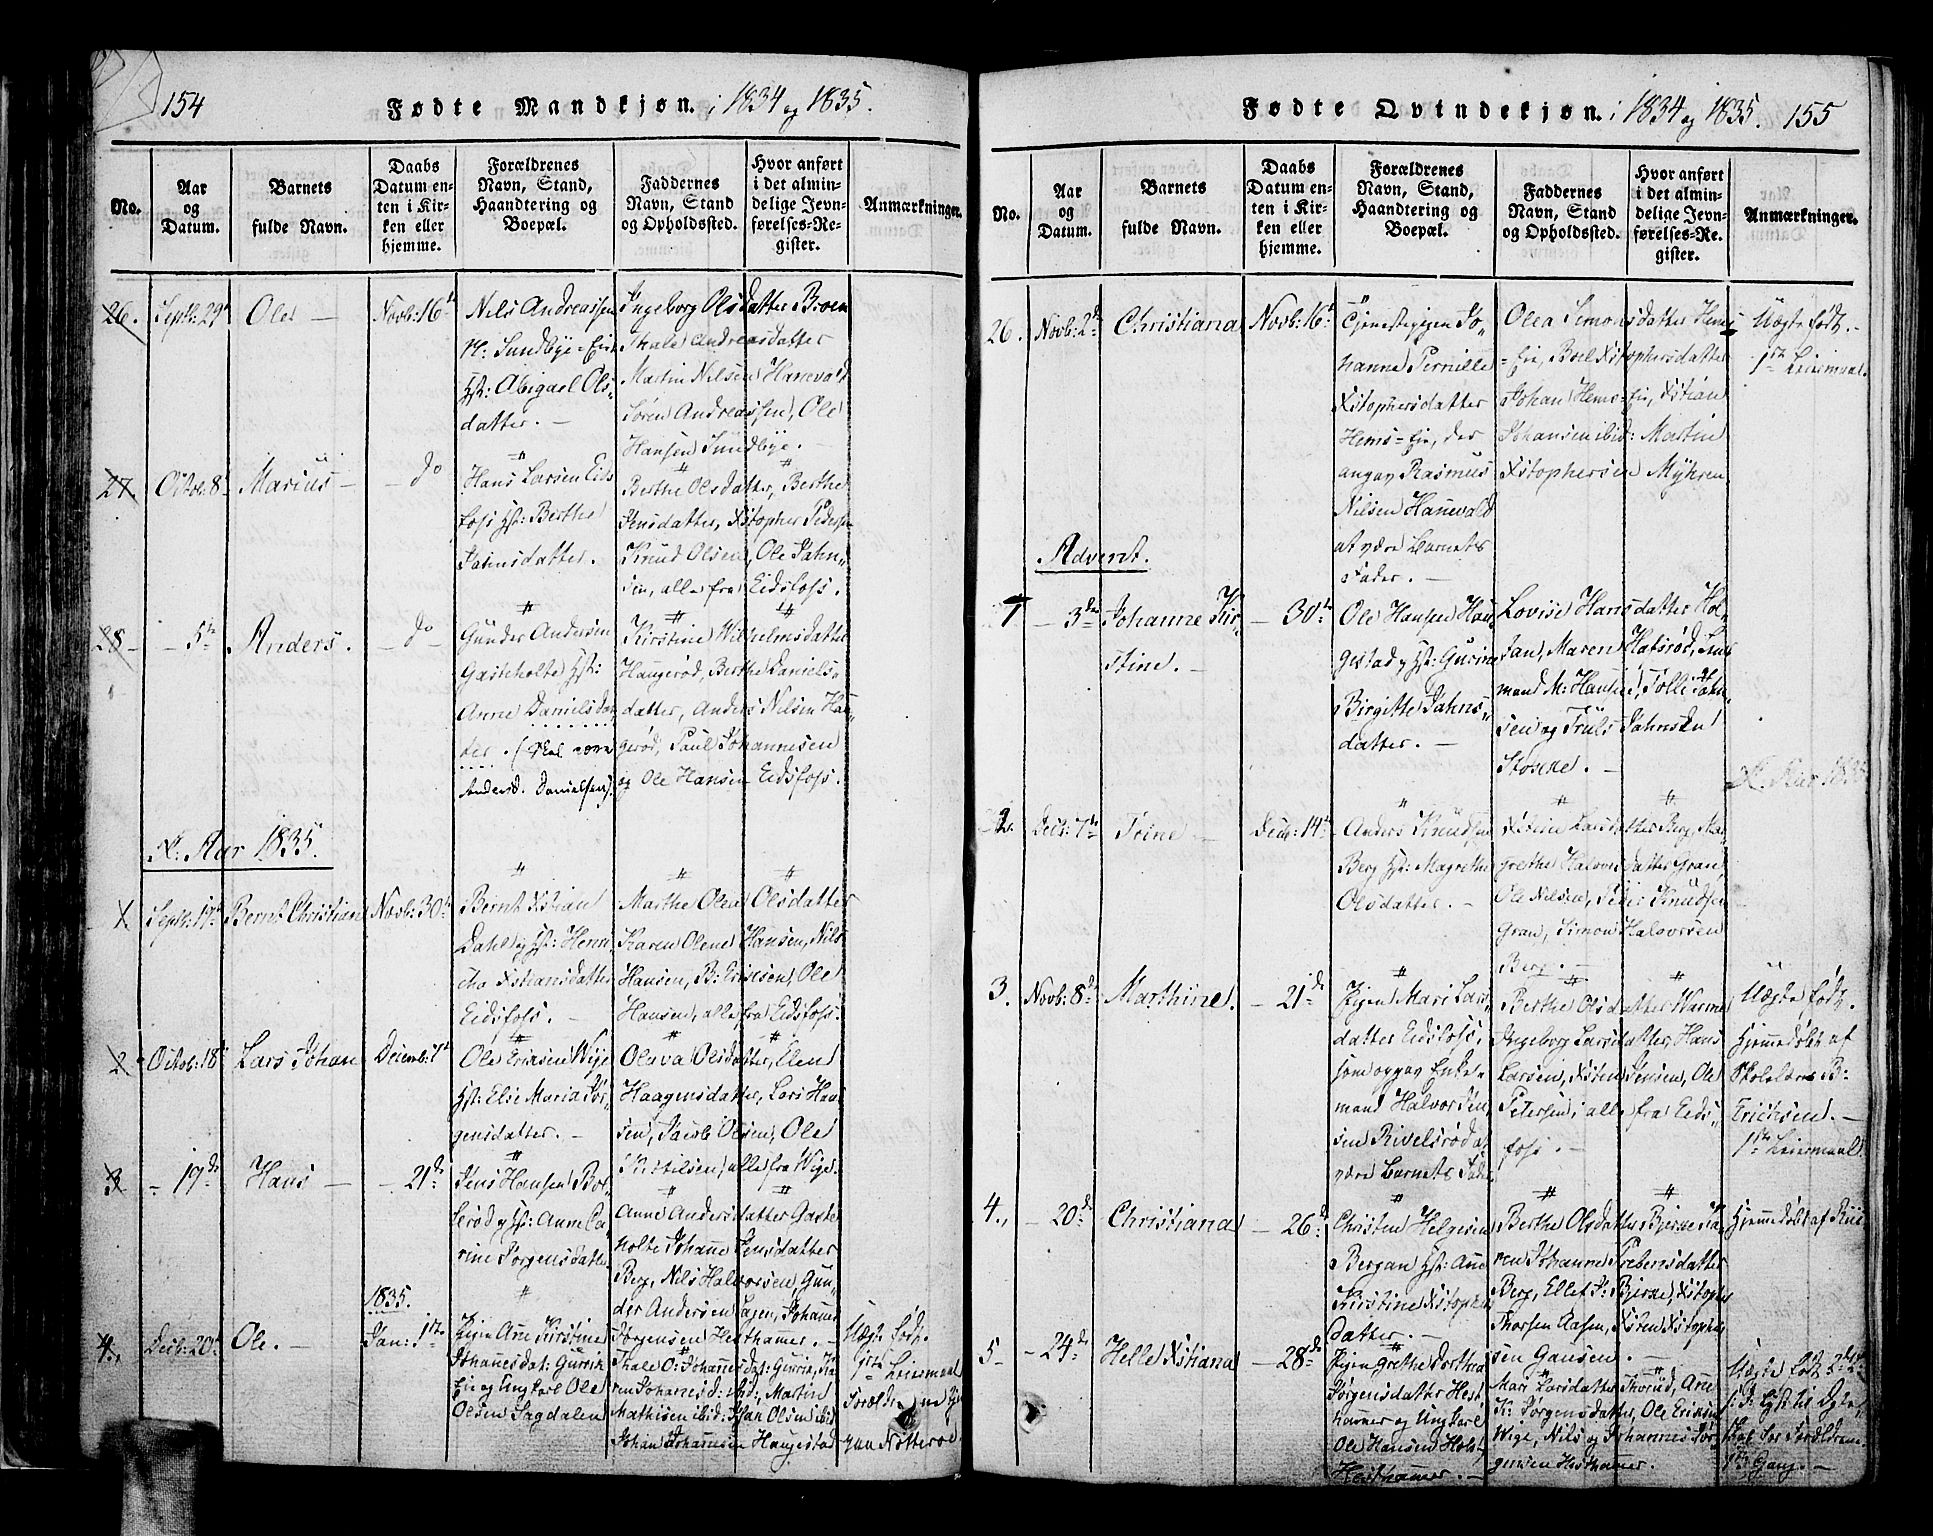 154 Fødte Mandkjøn. i 1834 og 1835.
No.
Aar
og
Datum.
Barnets
fulde Navn.
Daabs
Datum en-
ten i Kir-
ken eller
hjemme.
Forældrenes
Navn, Stand,
Haandtering og
Boepæl.
Faddernes
Navn, Stand
og Opholdssted.
Hvor anført
i det almin-
delige Jevn-
førelses-Re-
gister.
Anmærkninger.
26. Septb: 29de Ole Novb: 16de
Nils Andreassen
Sundbye-Eie
Hst: Abigael Ols-
datter.
Ingeborg Olsdatter Broen
Thale Andreasdatter
Martin Nilsen Hanevald
Søren Andreassen, Ole
Hansen Sundbye.
27. Octob: 8de Marius do
Hans Larsen Eids
foss Hst: Berthe
Jahnsdatter.
Berthe Olsdatter, Berthe
Jensdatter, Xstopher Peders-
Knud Olsen, Ole Jahn-
sen, alle fra Eidsfoss.
28 - 5te Anders. do
Gunder Andersen
Gasteholte Hst:
Anne Danielsdat-
ter. (skal være
Andersd. Danielsen).
Kirstine Wilhelmsdatter
Haugerød, Berthe Daniels-
datter, Anders Nilsen Hau-
gerød, Paul Johannesen
og Ole Hansen Eidsfoss.
K: Aar 1835.
1 Septb: 17de Bernt Christian Novb: 30te
Bernt Xstian
Dahl og Hst: Henri-
cha Xstiansdatter
Eidsfoss.
Marthe Olea Olsdatter
Karen Olene Hansen, Nils
Hansen, B: Ericksen, Ole
Hansen, alle fra Eidsfoss.
2 Octob: 18de Lars Johan Decemb: 7de
Ole Ericksen Wige
Hst: Elie Maria Jør-
gensdatter.
Olava Olsdatter, Elen
Haagensdatter, Lars Han-
sen, Jacob Olsen, Ole
Kittilsen, alle fra Wige.
3 - 17de Hans - 21de
Jens Hansen Bor-
gerød og Hst: Anne Ca-
rine Jørgensdatter
Anne Andersdatter Gaste
holte Johanne Jensdatter
Berg, Nils Halvorsen, Gun-
der Andersen Hagen, Johannes
Jørgensen Hesthamer.
1835.
4., Decb: 20de Ole. Jan: 1te
Pigen Ane Kirstine
Johannesdat: Gurrie
Eie og Ungkarl Ole
Olsen Sagdalen
Thale O: Johannesdat: Gurrie, Ka
ren Johannesd: ibid; Martin
Mathisen ibid: Johan Olsen ibid
Johan Johannesen Haugestad
Uægte født.
1ste Leiermaal
Forældrene
paa Nøtterøe
Fødte Qvindekjøn. i 1834 og 1835. 155
No.
Aar
og
Datum.
Barnets
fulde Navn.
Daabs
Datum en-
ten i Kir-
ken eller
hjemme.
Forældrenes
Navn, Stand,
Haandtering og
Boepæl.
Faddernes
Navn, Stand
og Opholdssted.
Hvor anført
i det almin-
delige Jevn-
førelses-Re-
gister.
Anmærkninger.
26. Novb: 2de Christiana Novb: 16de
Tjenestepigen Jo-
hanne Pernille
Xstophersdatter
Hems-Eie, der
angav Rasmus
Nilsen Hanevald
at være Barnets
Fader.
Olea Simonsdatter Hems
-Eie, Boel Xstophersdatter
Johan Hems-Eie, Xstian
Johansen ibid: Martin
Xstophersen Myhren
Uægte født.
1ste Leiermaal.
Advent.
1 - 3die Johanne Kir-
stine. - 30te
Ole Hansen Hau-
gestad og Hst: Gurine
Birgitte Jahns-
datter.
Lovise Hansdatter Hol-
Jan, Maren Hatsrød,
mand M: Hansen, Tolle Jahn-
sen og Truls Jahnsen
K. Aar 1835
2. Decb: 7de Trine Decb: 14de
Anders Knudsen
Berg Hst: Magrethe
Olsdatter.
Xstine Larsdatter Berg, Mar
grethe Halvorsdatter Gran
Ole Nilsen, Peder Knudsen
Gran, Simon Halvorsen
Berg.
3. Novb: 8de Marthine. - 21de
Pigen Mari Lars-
datter Eidsfoss;
som opgav Enke-
mand Halvor Jen-
sen Rivelsrød at
være Barnets Fader
Berthe Olsdatter Warme
Ingeborg Larsdatter, Hans
Larsen, Xsten Jensen, Ole
Petersen; alle fra Eids-
foss.
Uægte født.
Hjemmedøbt af
Skolelærer B:
Erichsen.
1ste Leiermaal
4., - 20de Christiana - 26de
Christen Helgesen
Bergan Hst: Ane
Kirstine Xstophers
datter.
Berthe Olsdatter Bjerke Ka-
ren Johanne Prebensdatter
Berg, Ellef P: Bjerke, Xstopher
Thorsen Aasen, Xsten Xstopher
sen Gansen.
Hjemmedøbt af
5 - 24de Helle Xstiana - 28de
Pigen Grethe Dorthea
Jørgensdatter Hest-
hamer og Ungkarl
Ole Hansen Holst
Hesthamer.
Mari Larsdatter Thorud, Ane
K: Jørgensdatter, Ole Ericksen
Wige, Nils og Johannes Jør-
gensen Hesthamer.
Uægte født
for Forældrene
1ste Gang.